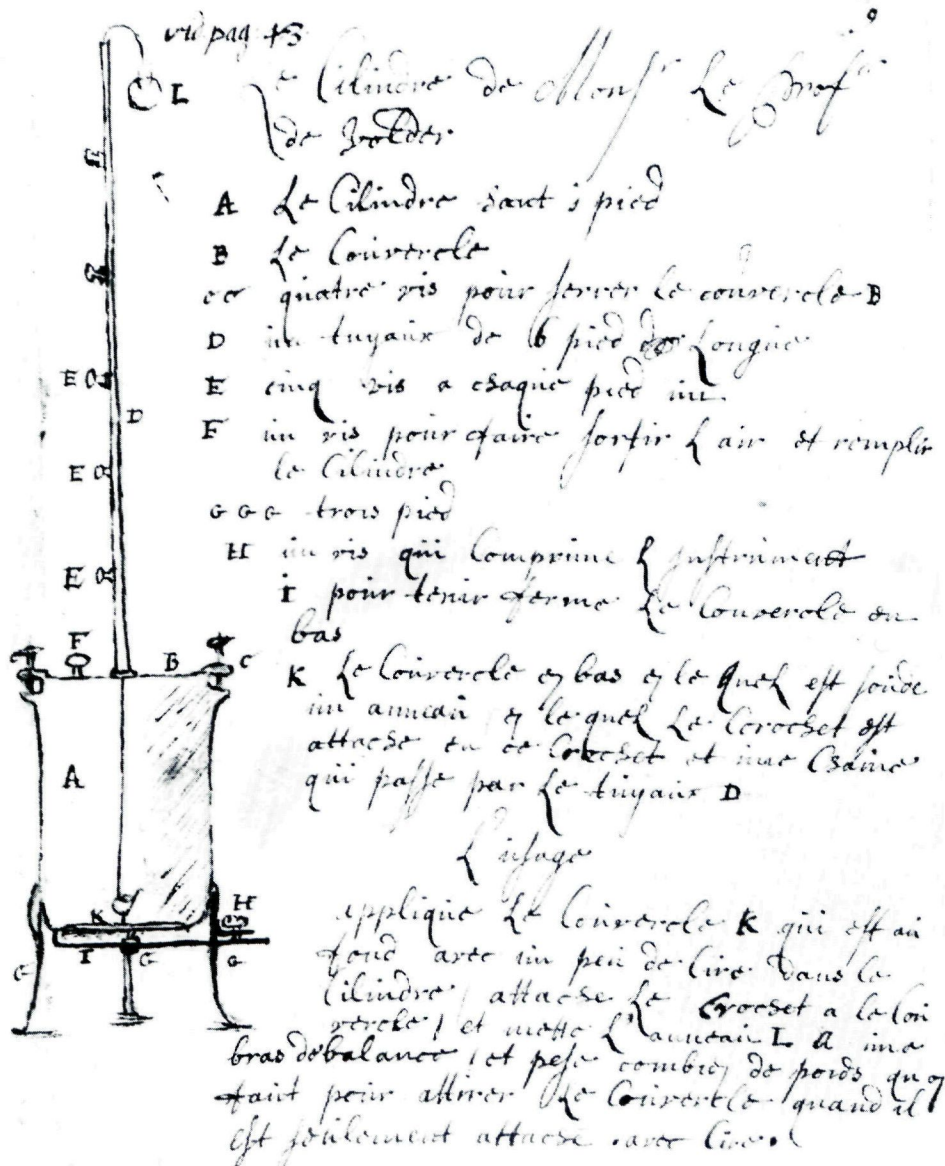 vid pag 43
9
L
Le Cilindre de Monsr Le Profr
de Volder
A Le Cilindre haut 1 pied
B Le Couvercle
cc quatre vis pour serrer Le couvercle B
D un tuyaux de 6 pied de Longue
E cinq vis a chaque pied un
F un vis pour faire sortir L air et remplir
le Cilindre
G G G trois pied
H un vis qui Comprime L jnstrument
I pour tenir ferme Le Couvercle en
bas
K Le Couvercle en bas en le quel est soude
un anneau en lequel Le Crochet est
attache en ce Crochet et une Chaine
qui passe par Le tuyaux D
L usage
applique Le Couvercle K qui est au
fond avec un peu de Cire dans le
Cilindre / attache Le Crochet a le Cou
vercle / et mette L anneau L a une
bras de balance / et pese combien de poids qu on
faut pour attirer Le Couvercle quand il
est seulement attache avec Cire
E
D
E
E
F
B
C
A
K
H
I
G
G
G